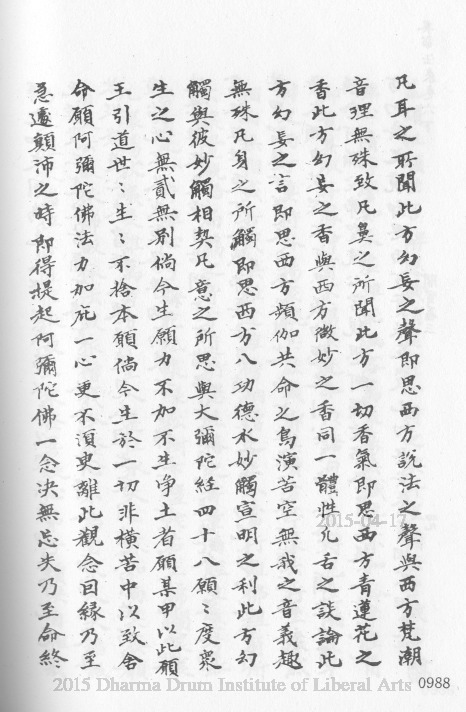 凡耳之所聞此方幻妄之聲即思西方說法之聲與西方梵潮
音理無殊致凡鼻之所聞此方一切香氣即思西方青蓮花之
香此方幻妄之香與西方微妙之香同一體性凡舌之談論此
方幻妄之言即思西方頻伽共命之鳥演苦空無我之音義趣
無殊凡身之所觸即思西方八功德水妙觸宣明之利此方幻
觸與彼妙觸相契凡意之所思與大彌陀經四十八願〻度衆
生之心無貳無別倘今生願力不加不生净土者願某甲以此願
王引道世〻生〻不捨本願倘今生於一切非橫苦中以致舍
命願阿彌陀佛法力加庇一心更不須臾離此觀念因緣乃至
急遽顛沛之時即得提起阿彌陀佛一念决無忘失乃至命終
2015-04-17
2015 Dharma Drum Institute of Liberal Arts 0988